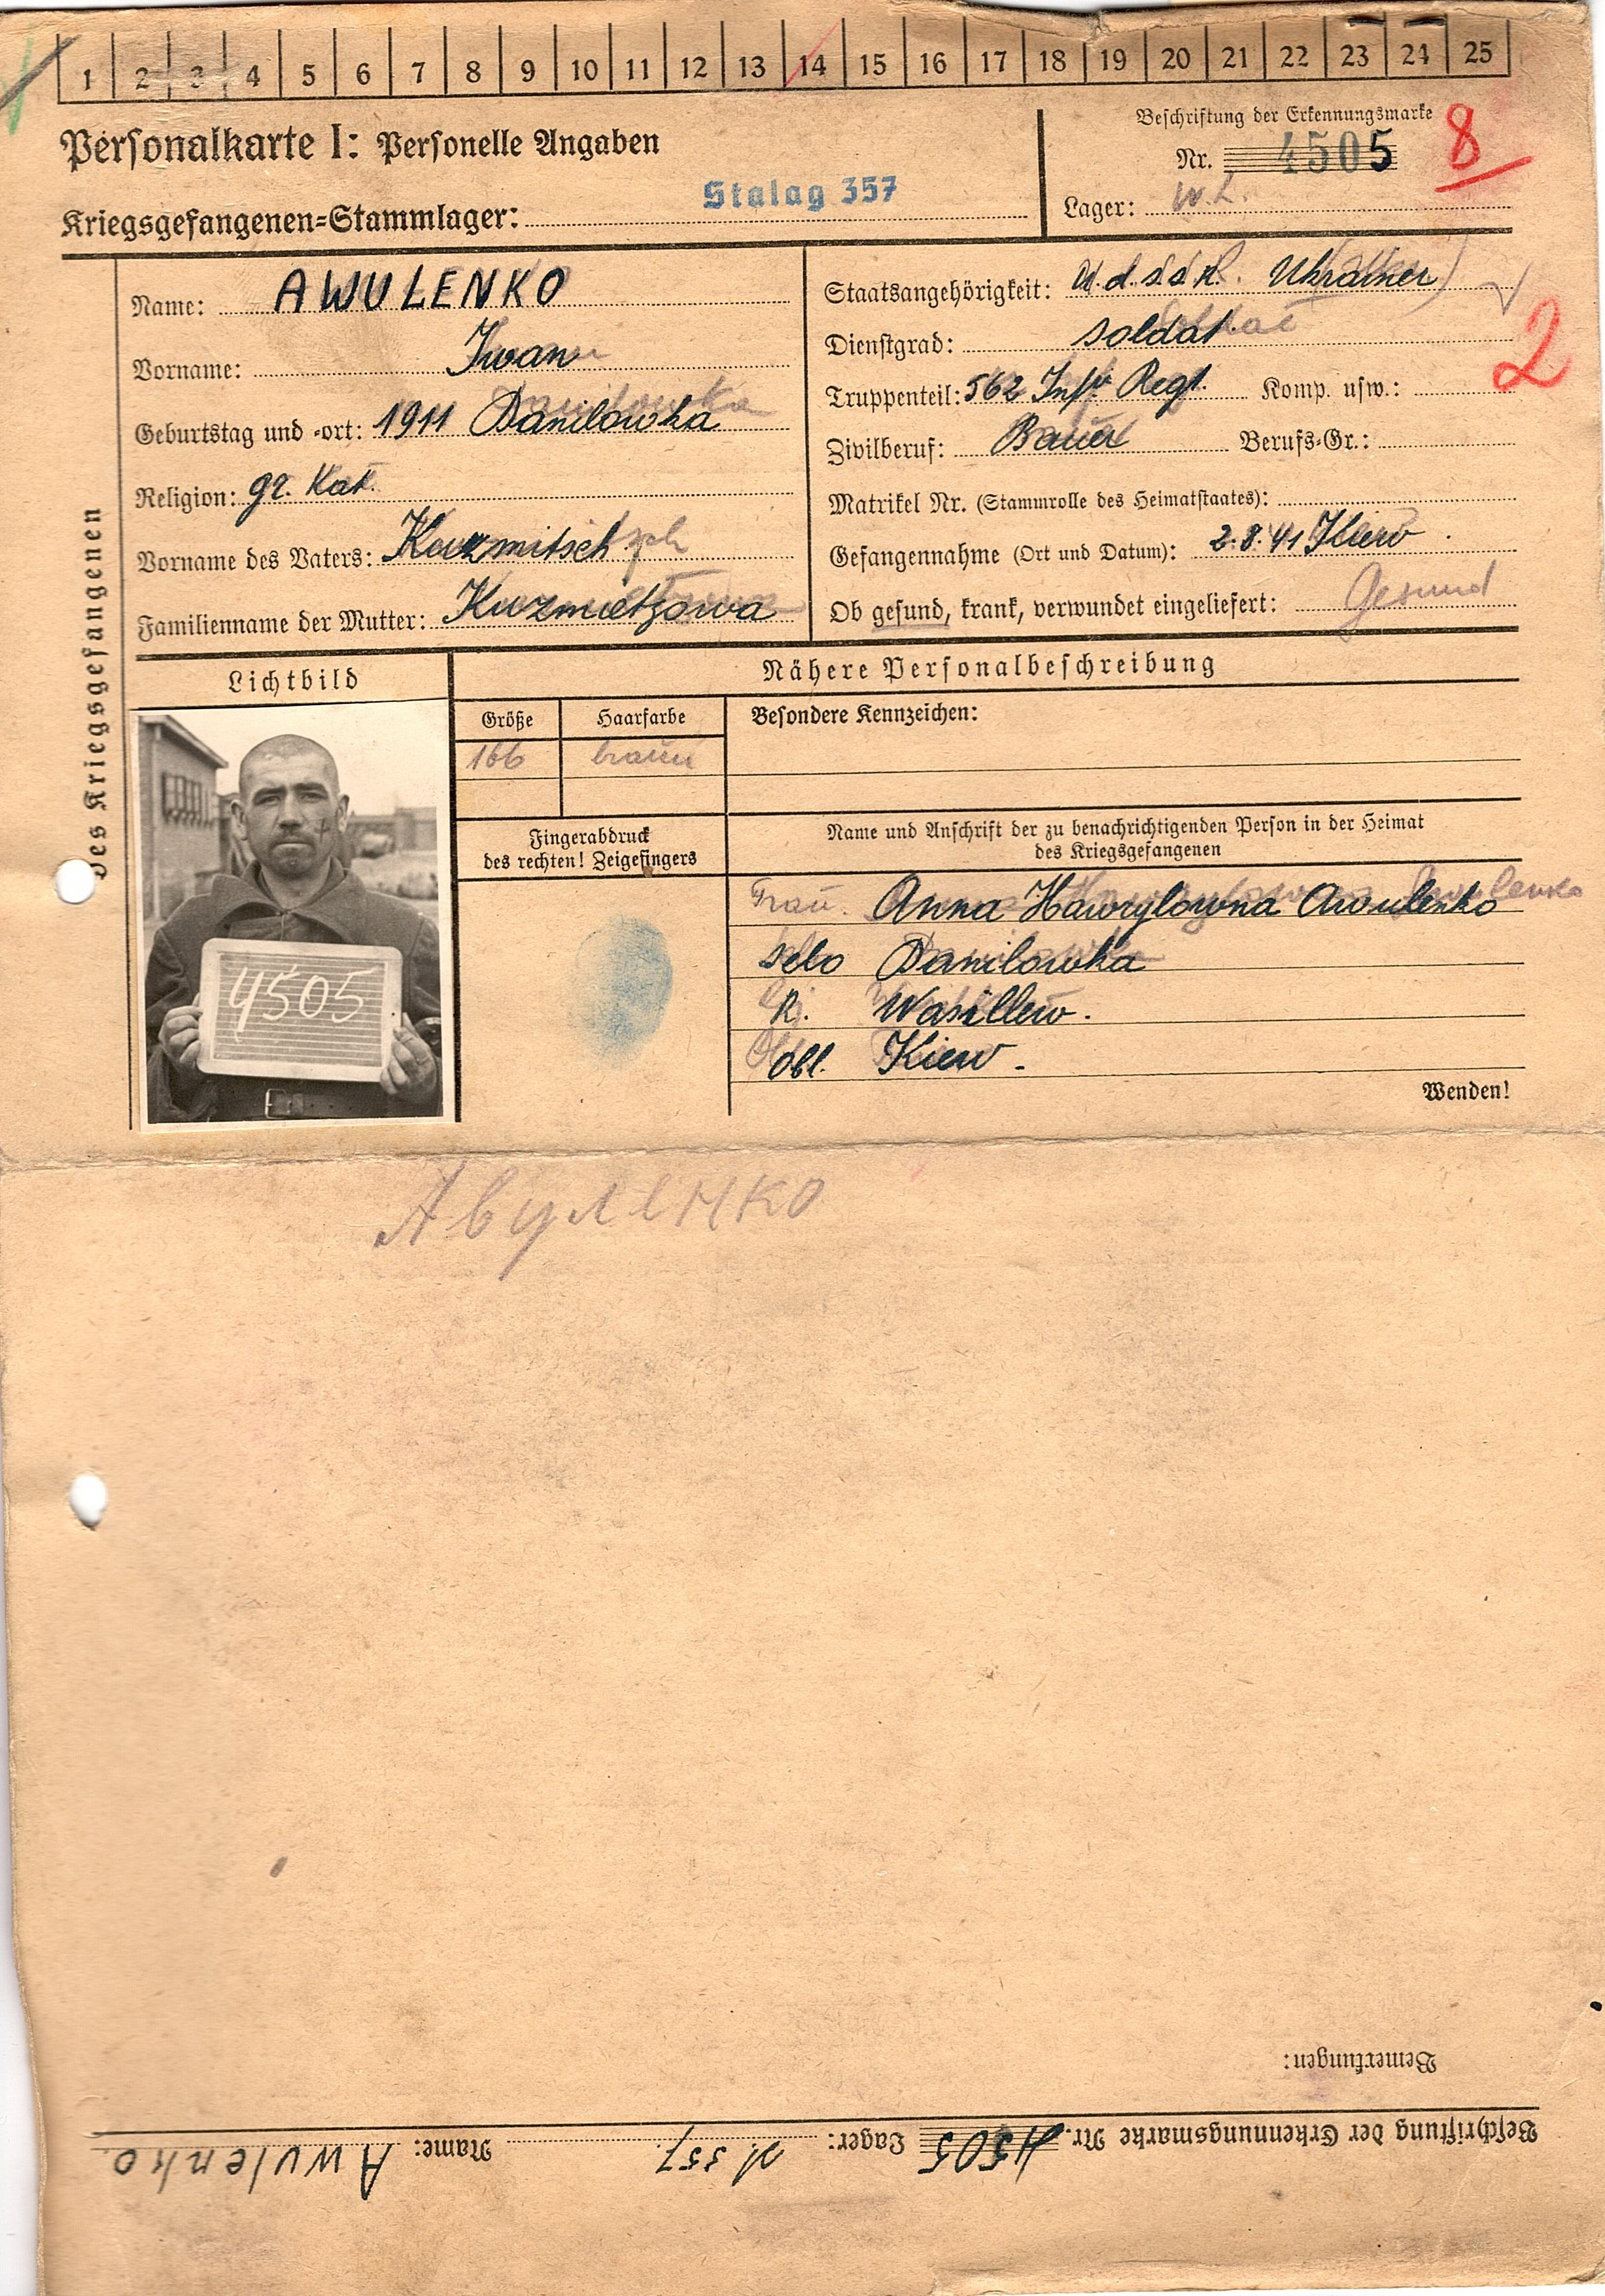 1 2 3 4 5 6 7 8 9 10 11 12 13 14 15 16 17 18 19 20 21 22 23 24 25
Personalkarte I: Personelle Angaben
Beschriftung der Erkennungsmarke
Nr. 4505
8
Kriegsgefangenen=Stammlager: Stalag 357
Lager: W.L.
des Kriegsgefangenen
Name: AWULENKO
Vorname: Iwan
Geburtstag und -ort: 1911 Danilowka
Religion: gr. Kat.
Vorname des Vaters: Kuzmitsch
Familienname der Mutter: Kuzmietzowa
Staatsangehörigkeit: U.d.S.S.R. Ukrainer
Dienstgrad: Soldat
2
Truppenteil: 562 Inf. Regt. Komp. usw.:
Zivilberuf: Bauer Berufs-Gr.:
Matrikel Nr. (Stammrolle des Heimatstaates):
Gefangennahme (Ort und Datum): 2.8.41 Kiew
Ob gesund, krank, verwundet eingeliefert: Gesund
Lichtbild
Nähere Personalbeschreibung
Größe Haarfarbe Besondere Kennzeichen:
166 braun
Fingerabdruck
des rechten! Zeigefingers
Name und Anschrift der zu benachrichtigenden Person in der Heimat
des Kriegsgefangenen
Frau. Anna Hawrylowna Awulenko
selo Danilowka
R. Wasillew.
Obl. Kiew -
4505
Wenden!
Авуленко
Bemerkungen:
Beschriftung der Erkennungsmarke Nr. 4505 Lager: 357 Name: Awulenko